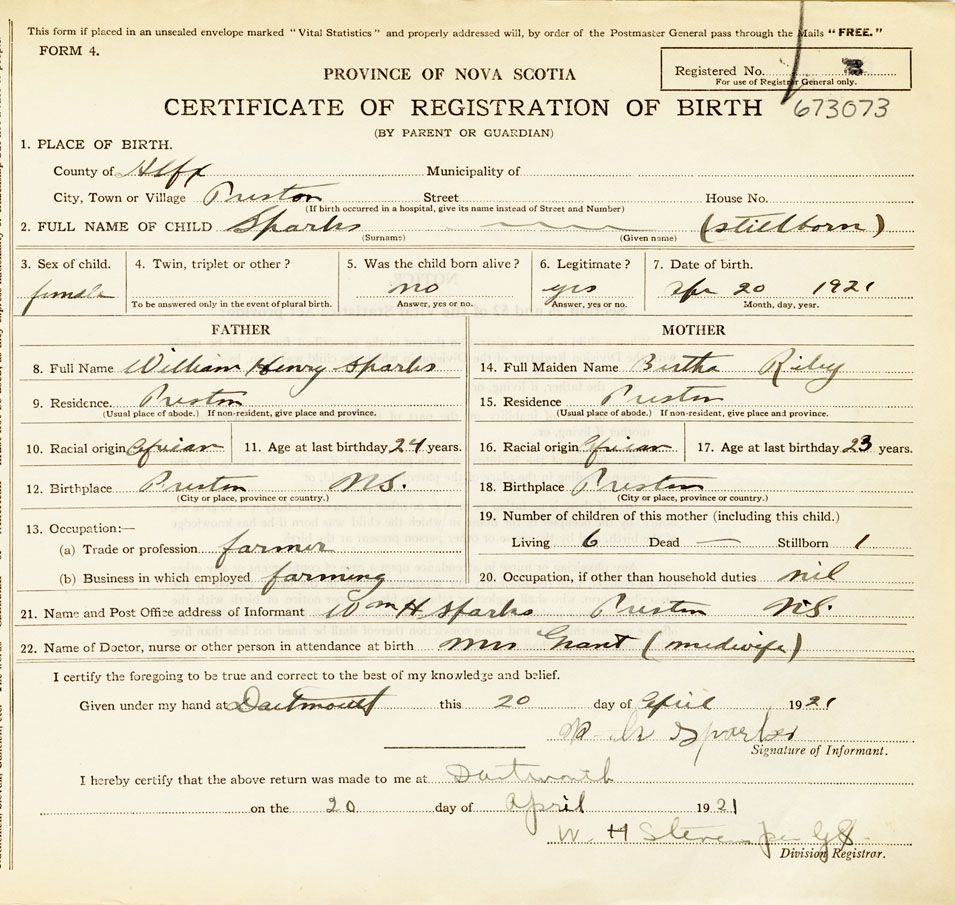 This form if placed in an unsealed envelope marked "Vital Statistics" and properly addressed will, by order of the Postmaster General pass through the Mails "FREE."
FORM 4.
PROVINCE OF NOVA SCOTIA
Registered No.
For use of Registrar General only.
CERTIFICATE OF REGISTRATION OF BIRTH 673073
(BY PARENT OR GUARDIAN)
1. PLACE OF BIRTH.
County of Hlfx Municipality of
City, Town or Village Preston Street House No.
(If birth occurred in a hospital, give its name instead of Street and Number)
2. FULL NAME OF CHILD Sparks (stillborn)
(Surname) (Given name)
3. Sex of child. 4. Twin, triplet or other? 5. Was the child born alive? 6. Legitimate? 7. Date of birth.
female no yes Apr 20 1921
To be answered only in the event of plural birth. Answer, yes or no. Answer, yes or no. Month, day, year.
FATHER MOTHER
8. Full Name William Henry Sparks 14. Full Maiden Name Bertha Riley
9. Residence Preston 15. Residence Preston
(Usual place of abode.) If non-resident, give place and province. (Usual place of abode.) If non-resident, give place and province.
10. Racial origin African 11. Age at last birthday 24 years. 16. Racial origin African 17. Age at last birthday 23 years.
12. Birthplace Preston N.S. 18. Birthplace Preston
(City or place, province or country.) (City or place, province or country.)
13. Occupation:— 19. Number of children of this mother (including this child.)
(a) Trade or profession farmer Living 6 Dead — Stillborn 1
(b) Business in which employed farming 20. Occupation, if other than household duties nil
21. Name and Post Office address of Informant Wm H Sparks Preston N.S.
22. Name of Doctor, nurse or other person in attendance at birth Mrs Grant (medwife)
I certify the foregoing to be true and correct to the best of my knowledge and belief.
Given under my hand at Dartmouth this 20 day of April 1921
W H Sparks
Signature of Informant.
I hereby certify that the above return was made to me at Dartmouth
on the 20 day of April 1921
W. H Stevens per
Division Registrar.